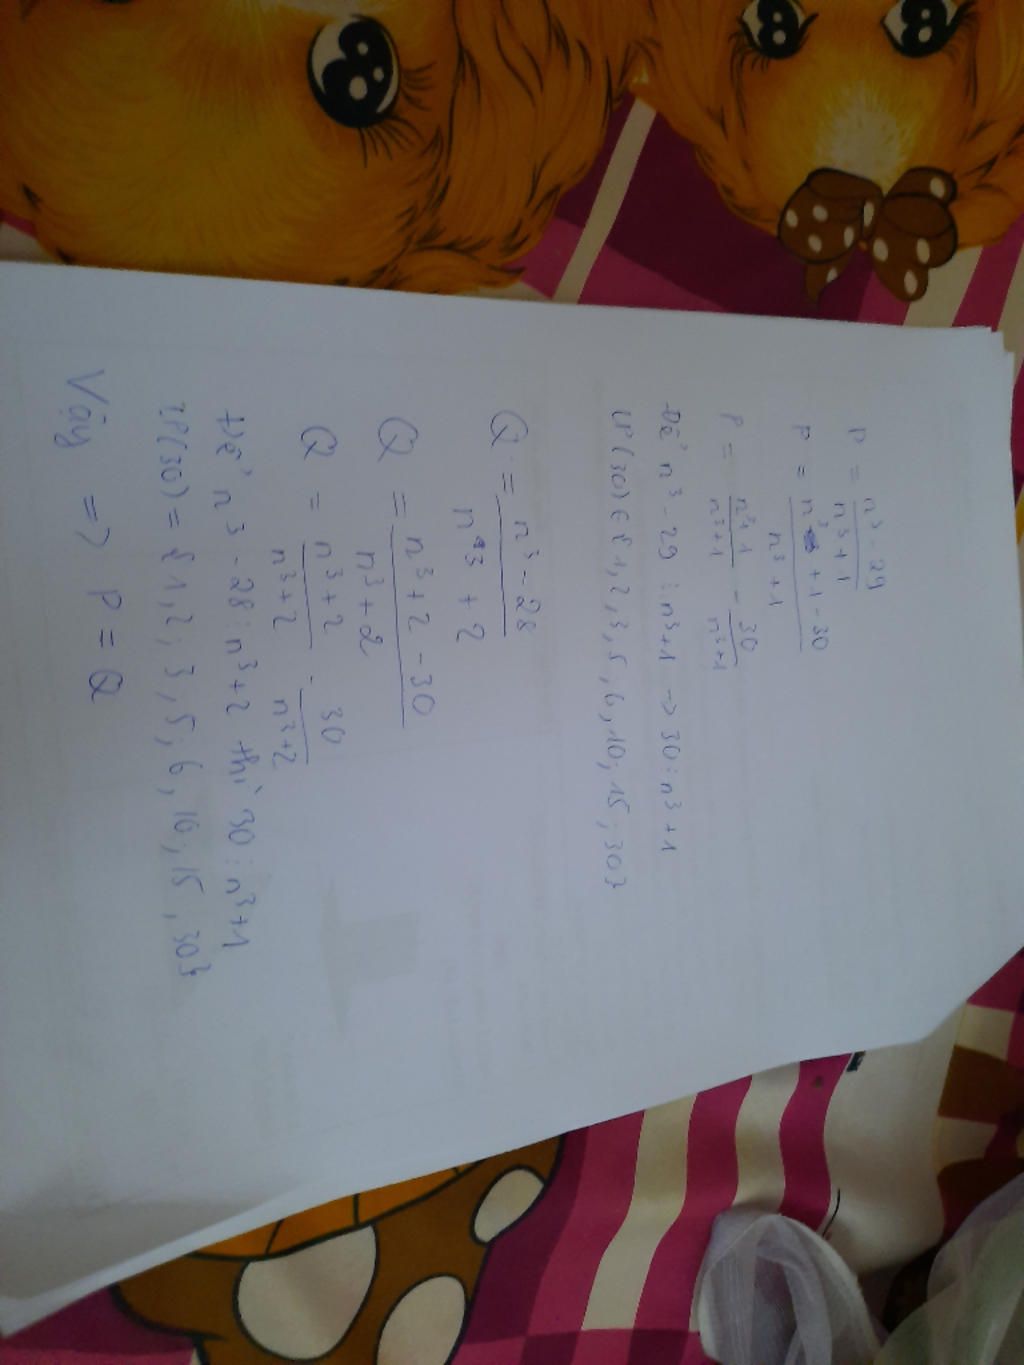 P = n³ - 29 / n³ + 1
P = n³ + 1 - 30 / n³ + 1
P = n³+1 / n³+1 - 30 / n³+1
Để n³ - 29 ⋮ n³+1 -> 30 ⋮ n³+1
Ư(30) ∈ {1, 2, 3, 5, 6, 10, 15, 30}
Q = n³ - 28 / n³ + 2
Q = n³ + 2 - 30 / n³ + 2
Q = n³ + 2 / n³ + 2 - 30 / n³+2
Để n³ - 28 ⋮ n³+2 thì 30 ⋮ n³+1
Ư(30) = {1, 2; 3, 5; 6, 10; 15, 30}
Vậy => P = Q